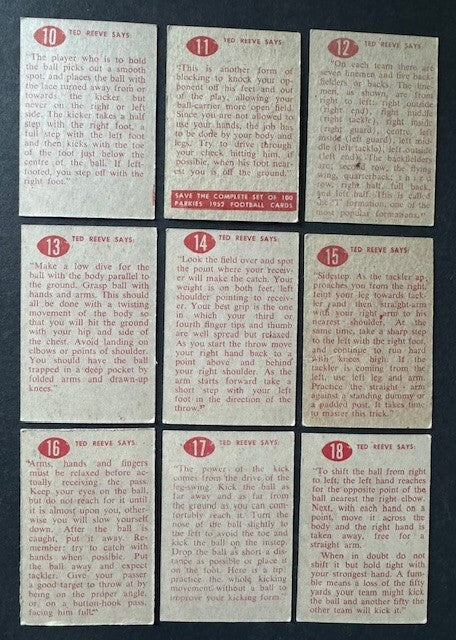 10 TED REEVE SAYS:
"The player who is to hold
the ball picks out a smooth
spot, and places the ball with
the lace turned away from or
towards the kicker but
never on the right or left
side. The kicker takes a half
step with the right foot, a
full step with the left foot
and then kicks with the toe
of the foot just below the
centre of the ball. If left-
footed, you step off with the
right foot."
11 TED REEVE SAYS:
"This is another form of
blocking to knock your op-
ponent off his feet and out
of the play, allowing your
ball-carrier more open field.
Since you are not allowed to
use your hands, the job has
to be done by your body and
legs. Try to drive through
your check hitting him, if
possible, when his foot near-
est you is off the ground."
SAVE THE COMPLETE SET OF 100
PARKIES 1952 FOOTBALL CARDS
12 TED REEVE SAYS:
"On each team there are
seven linemen and five back-
fielders or backs. The line-
men, as shown, are from
right to left: right outside
(right end), right middle
(right tackle), right inside
(right guard), centre, left
inside (left guard), left mid-
dle (left tackle), left outside
(left end). The backfielders
are, second row, the flying
wing, quarterback,
row: right half, full back,
and left half. This is called
the T formation, one of the
most popular formations."
13 TED REEVE SAYS:
"Make a low dive for the
ball with the body parallel to
the ground. Grasp ball with
hands and arms. This should
all be done with a twisting
movement of the body so
that you will hit the ground
with your hip and side of
the chest. Avoid landing on
elbows or points of shoulder.
You should have the ball
trapped in a deep pocket by
folded arms and drawn-up
knees."
14 TED REEVE SAYS:
"Look the field over and spot
the point where your receiv-
er will make the catch. Your
weight is on both feet, left
shoulder pointing to receiv-
er. Your best grip is the one
in which your third or
fourth finger tips and thumb
are well spread but relaxed.
As you start the throw move
your right hand back to a
point above and behind
your right shoulder. As the
arm starts forward take a
short step with your left
foot in the direction of the
throw."
15 TED REEVE SAYS:
"Sidestep. As the tackler ap-
proaches you from the right,
feint your leg towards tack-
ler and then straight-arm
with your right arm to his
nearest shoulder. At the
same time, take a sharp step
to the left with the right foot,
and continue to run hard
with knees high. If the
tackler is coming from the
left, use left leg and arm.
Practice the straight - arm
against a standing dummy or
a padded post. It takes time
to master this trick."
16 TED REEVE SAYS:
"Arms, hands and fingers
must be relaxed before ac-
tually receiving the pass.
Keep your eyes on the ball,
but do not reach for it until
it is almost upon you, other-
wise you will slow yourself
down. After the ball is
caught, put it away. Re-
member: try to catch with
hands when possible. Put
the ball away and expect
tackler. Give your passer
a good target to throw at by
being on the proper angle,
or, on a button-hook pass,
facing him coming out."
17 TED REEVE SAYS:
"The power of the kick
comes from the drive of the
leg-swing. Kick the ball as
far away and as far from
the ground as you can com-
fortably reach it. Turn the
nose of the ball slightly to
the left to avoid the toe and
kick the ball on the instep.
Drop the ball as short a dis-
tance as possible or place it
on the foot. Here is a tip:
practice the whole kicking
movement without a ball to
improve your kicking form."
18 TED REEVE SAYS:
"To shift the ball from right
to left, the left hand reaches
for the opposite point of the
ball nearest the right elbow.
Next, with each hand on a
point, move it across the
body and the right hand is
taken away, free for a
straight arm.
When in doubt do not
shift it but hold tight with
your strongest hand. A fum-
ble means a loss of the fifty
yards your team might kick
the ball and another fifty the
other team will kick it."